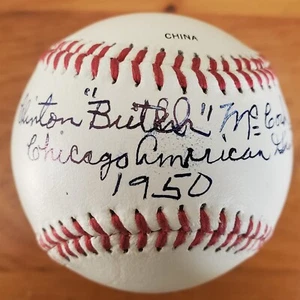 CHINA
Clinton "Butch" McCord
Chicago American
1950